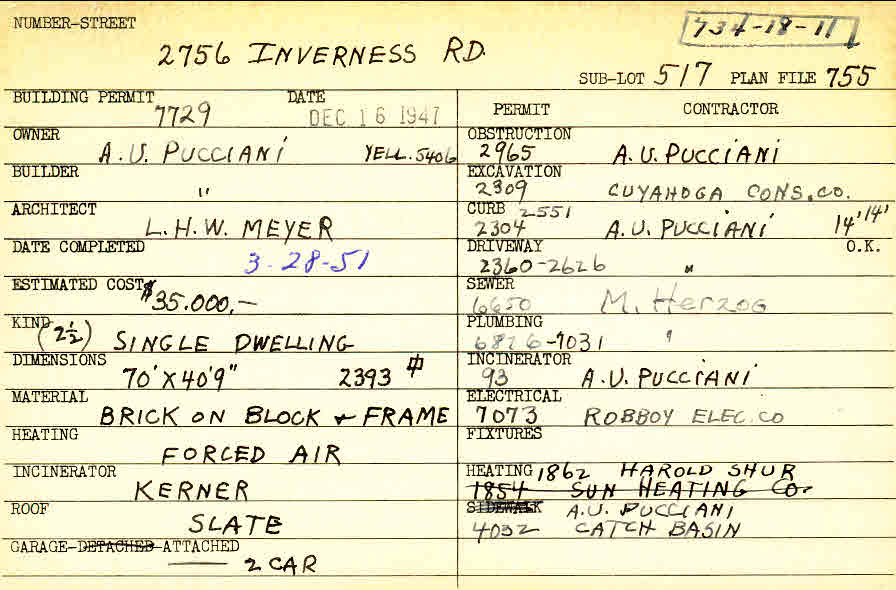 NUMBER-STREET
734-18-11
2756 INVERNESS RD.
SUB-LOT 517 PLAN FILE 755
BUILDING PERMIT DATE
7729 DEC 16 1947
OWNER
A.U. PUCCIANI YELL. 5406
BUILDER
"
ARCHITECT
L.H.W. MEYER
DATE COMPLETED
3-28-51
ESTIMATED COST
$35.000.—
KIND
(2½) SINGLE DWELLING
DIMENSIONS
70' X 40'9" 2393 ⌗
MATERIAL
BRICK ON BLOCK & FRAME
HEATING
FORCED AIR
INCINERATOR
KERNER
ROOF
SLATE
GARAGE-DETACHED-ATTACHED
2 CAR
PERMIT CONTRACTOR
OBSTRUCTION
2965 A.U. PUCCIANI
EXCAVATION
2309 CUYAHOGA CONS. CO.
CURB 2551
2304 A.U. PUCCIANI 14' 14'
DRIVEWAY O.K.
2360-2626 "
SEWER
6650 M. Herzog
PLUMBING
6826-7031 "
INCINERATOR
93 A.U. PUCCIANI
ELECTRICAL
7073 ROBBOY ELEC. CO
FIXTURES
HEATING 1862 HAROLD SHUR
1854 SUN HEATING CO.
SIDEWALK A.U. PUCCIANI
4032 CATCH BASIN